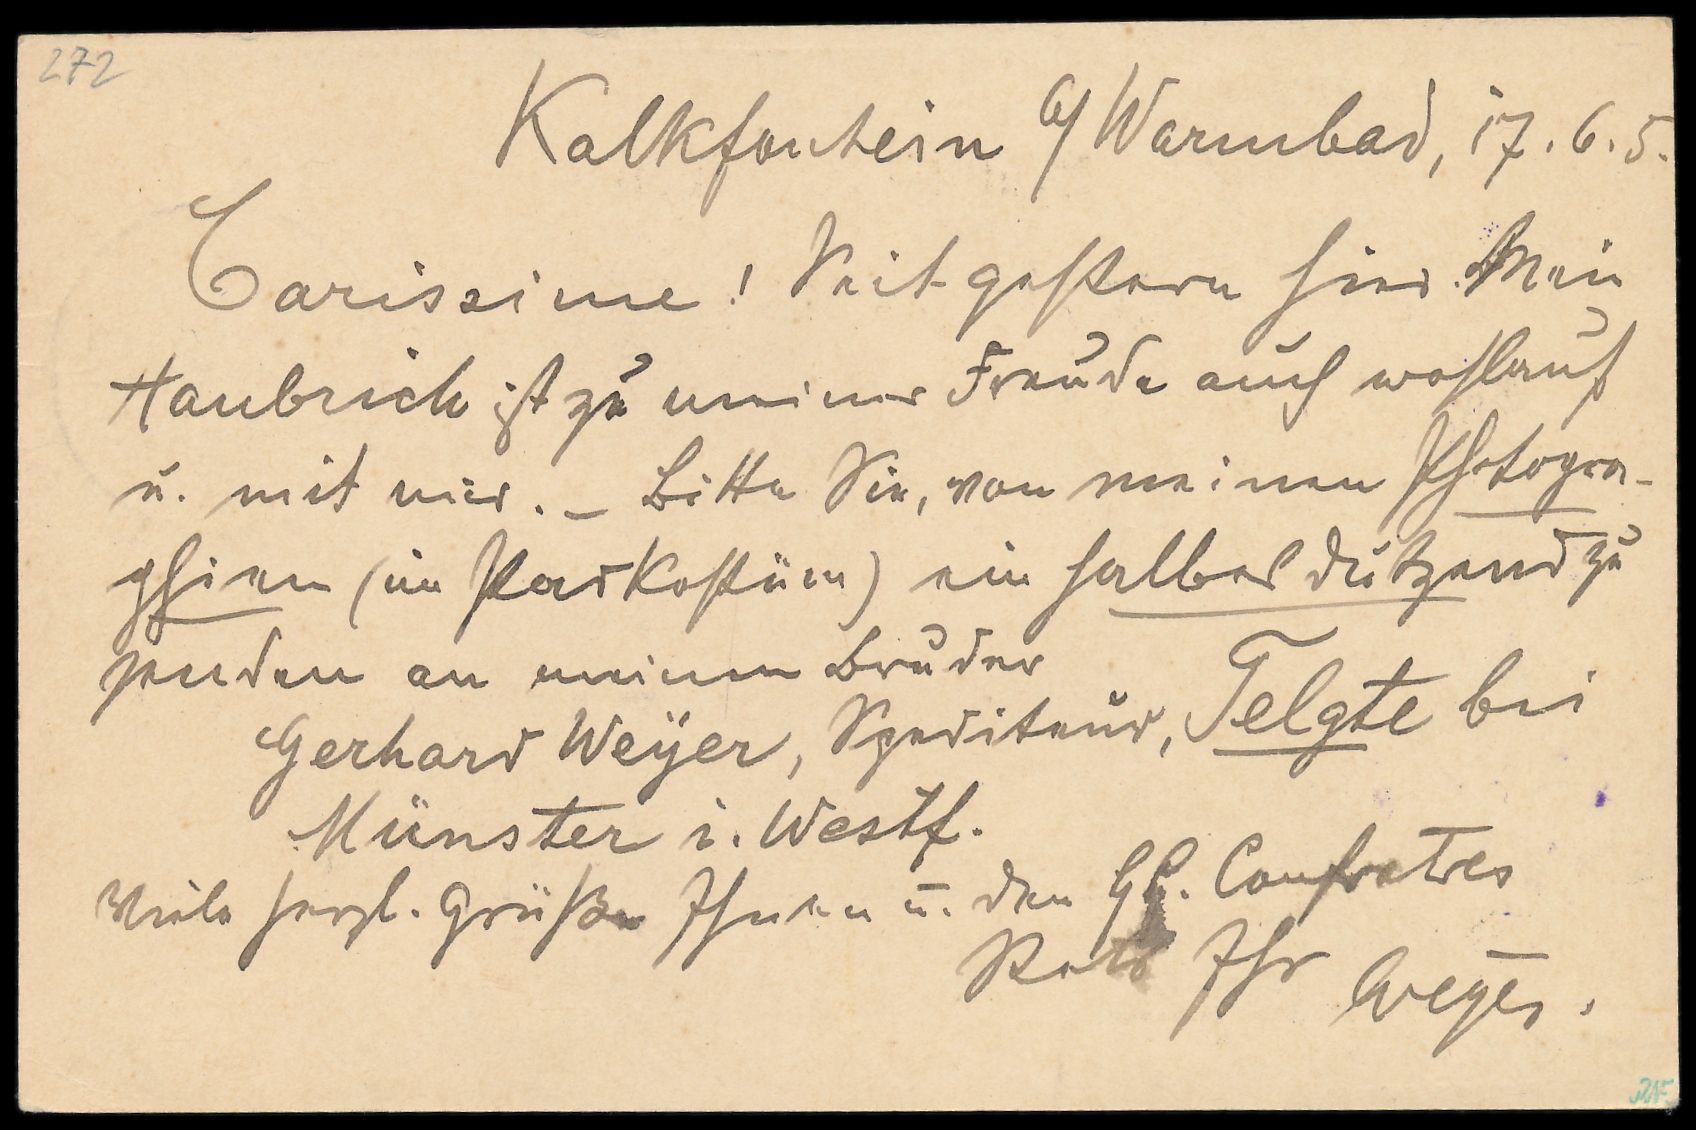 272
Kalkfontein b/ Warmbad, 17.6.5.
Carissime! Seit gestern hier. Mein
Haubrich ist zu meiner Freude auch wohlauf
u. mit mir. – Bitte Sie, von meinen Photogra-
phien (im Parkostüm) ein halbes Dutzend zu
senden an meinen Bruder
Gerhard Weÿer, Spediteur, Telgte bei
Münster i. Westf.
Viele herzl. Grüße Ihnen u. den HH. Confratres
Stets Ihr Weyer.